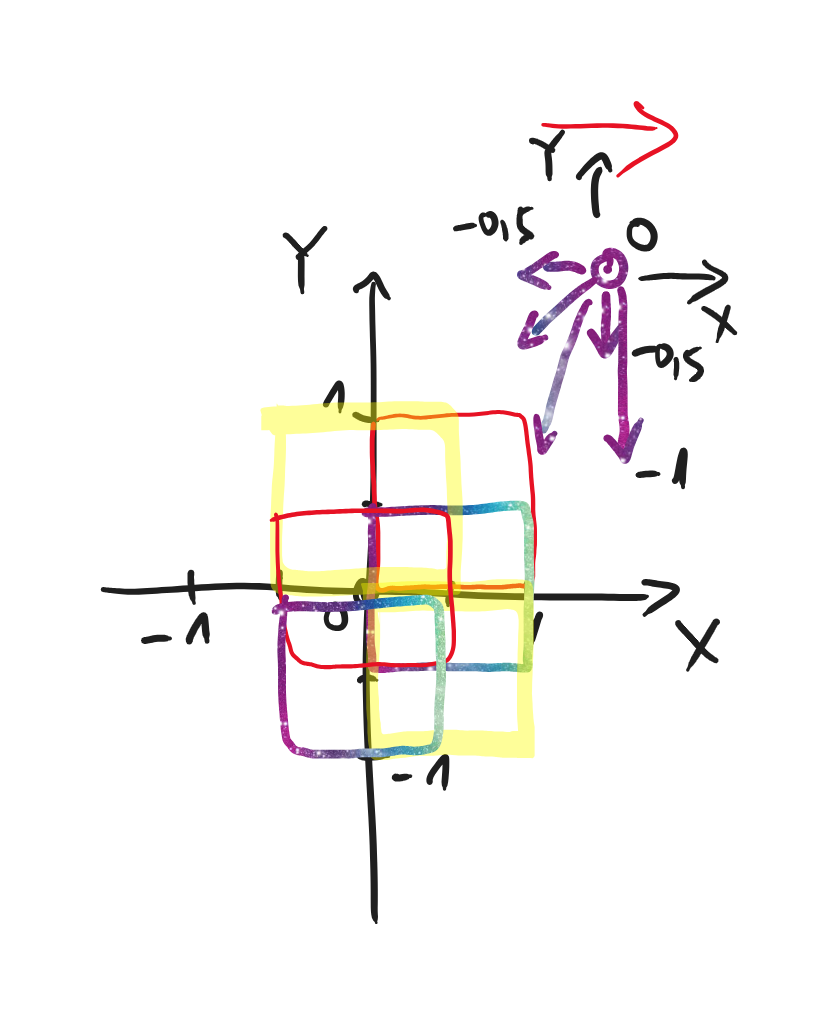 Y
-0,5
0
X
-0,5
-1
Y
1
-1
0
X
-1